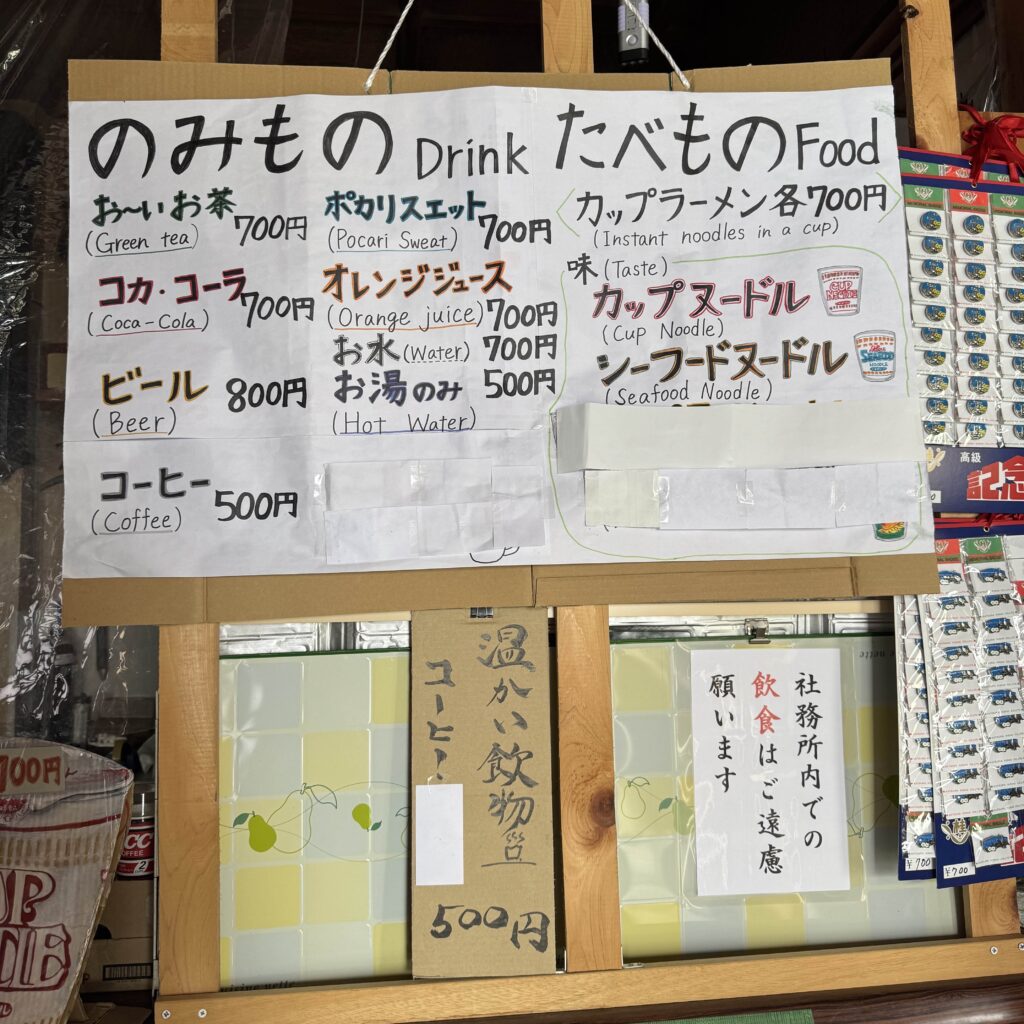 のみもの Drink
お〜いお茶 700円
(Green tea)
コカ・コーラ 700円
(Coca-Cola)
ビール 800円
(Beer)
コーヒー 500円
(Coffee)
ポカリスエット 700円
(Pocari Sweat)
オレンジジュース
(Orange juice) 700円
お水(Water) 700円
お湯のみ 500円
(Hot Water)
たべもの Food
カップラーメン各700円
(Instant noodles in a cup)
味(Taste)
カップヌードル
(Cup Noodle)
CUP NOODLE
シーフードヌードル
(Seafood Noodle)
温かい飲物
コーヒー!
500円
社務所内での
飲食はご遠慮
願います
高級
記念
¥700
¥700
COFFEE